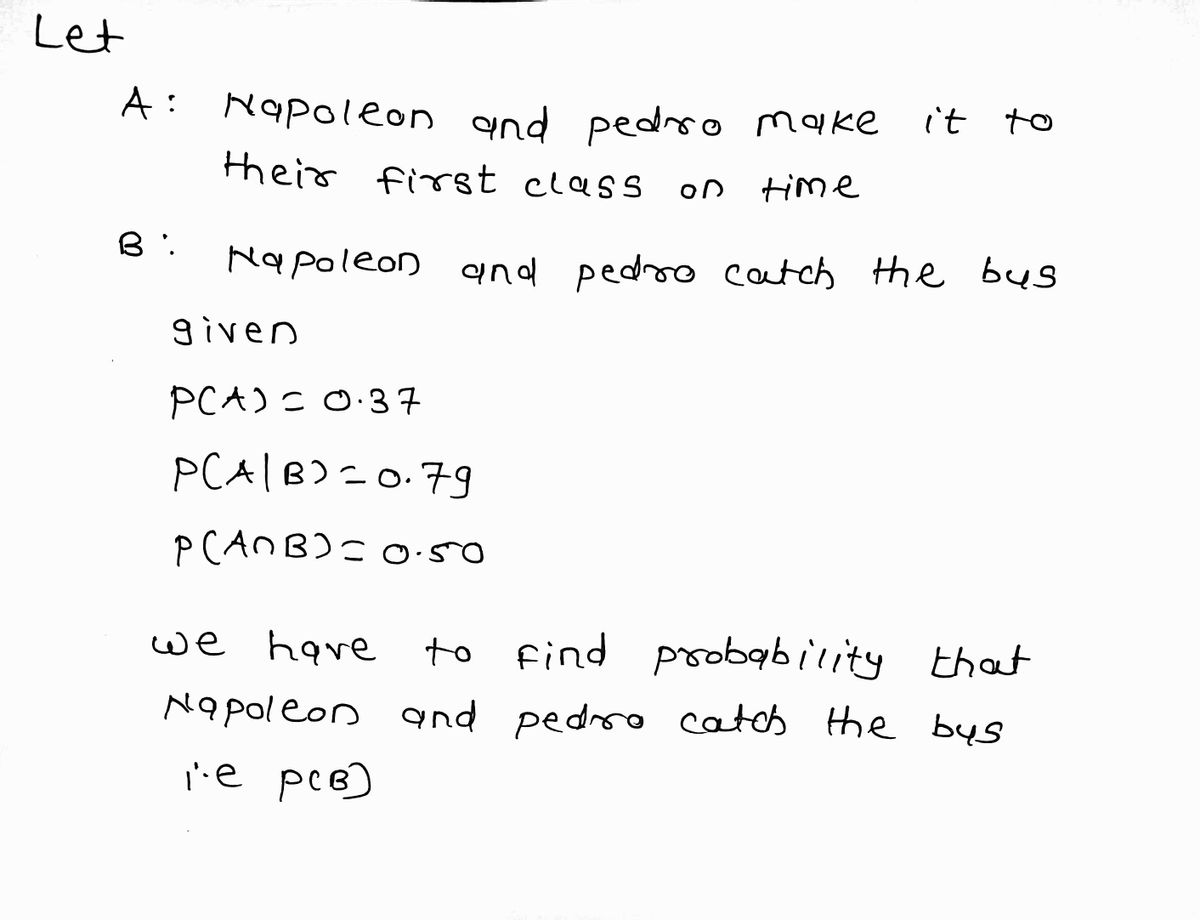 Let
A: Napoleon and pedro make it to
their first class on time
B: Napoleon and pedro catch the bus
given
P(A) = 0.37
P(A|B) = 0.79
P(A∩B) = 0.50
we have to find probability that
Napoleon and pedro catch the bus
i.e P(B)